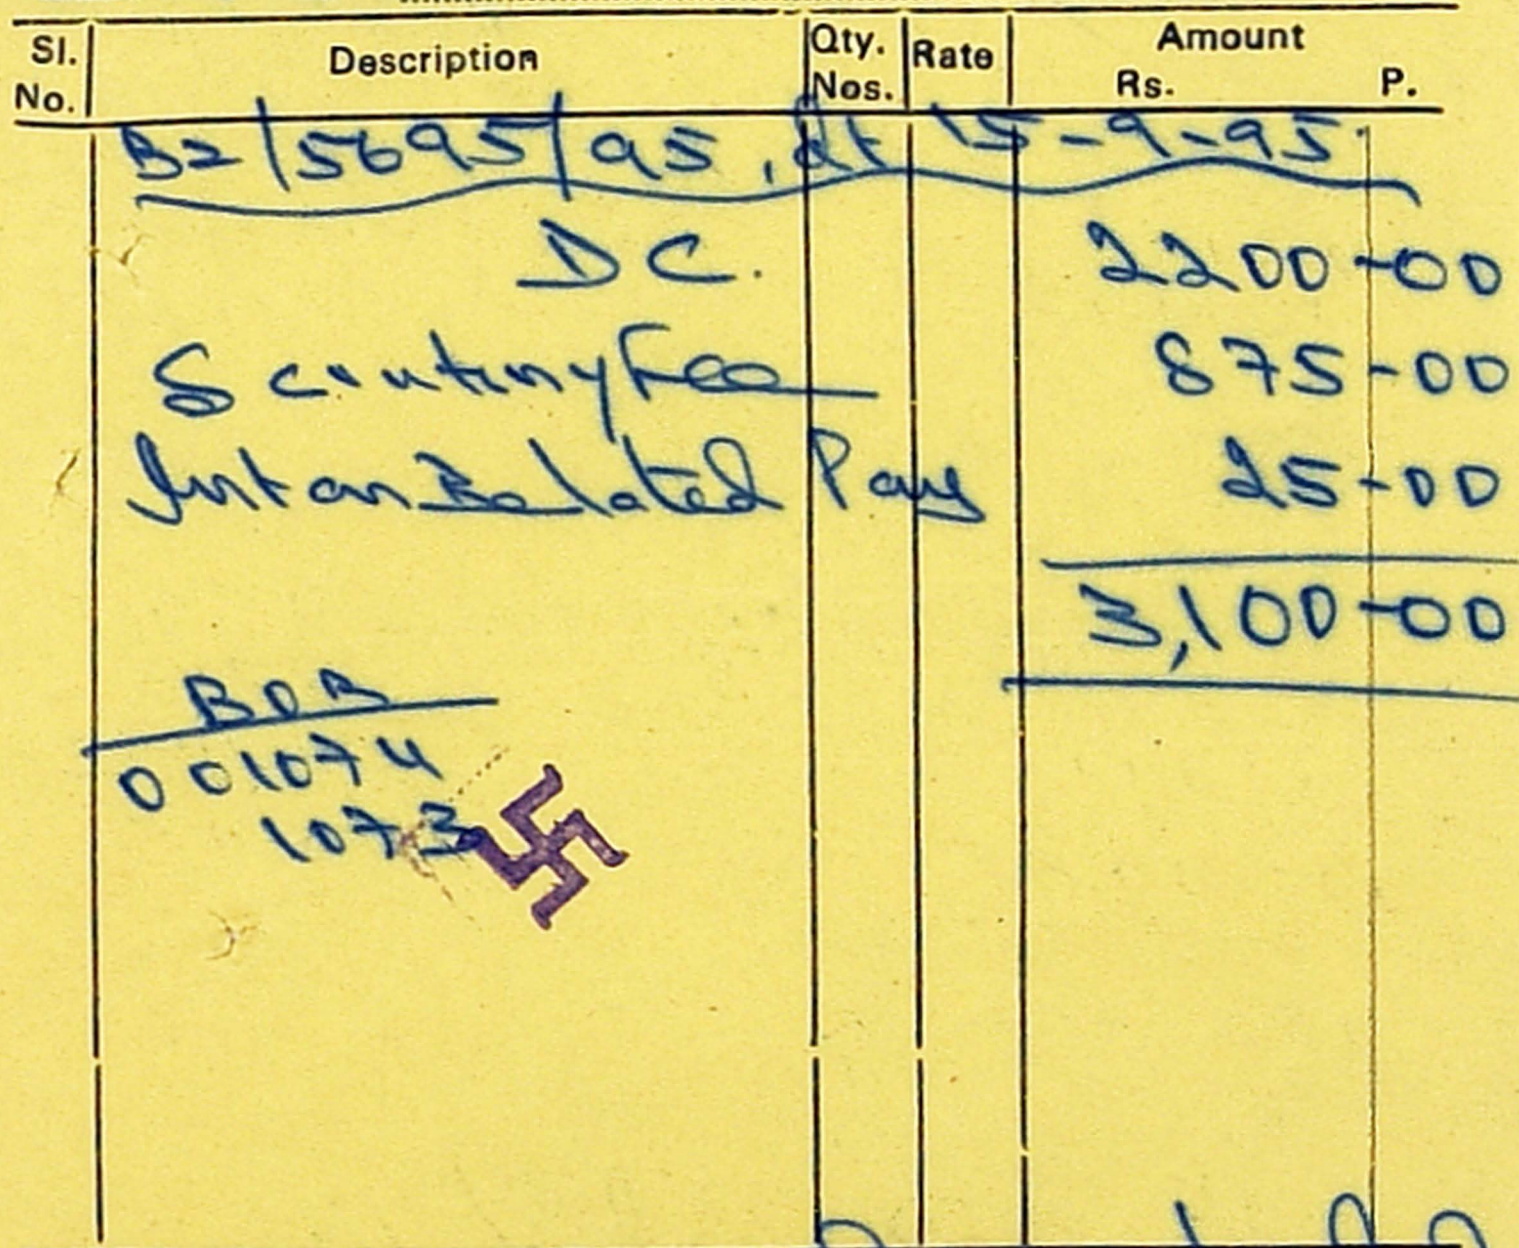 Sl. No. Description Qty. Nos. Rate Amount Rs. P.
B2/5695/95, dt 15-9-95
DC. 2200-00
Scrutiny Fee 875-00
Int on Belated Pay 25-00
3,100-00
BOB
001074
1073